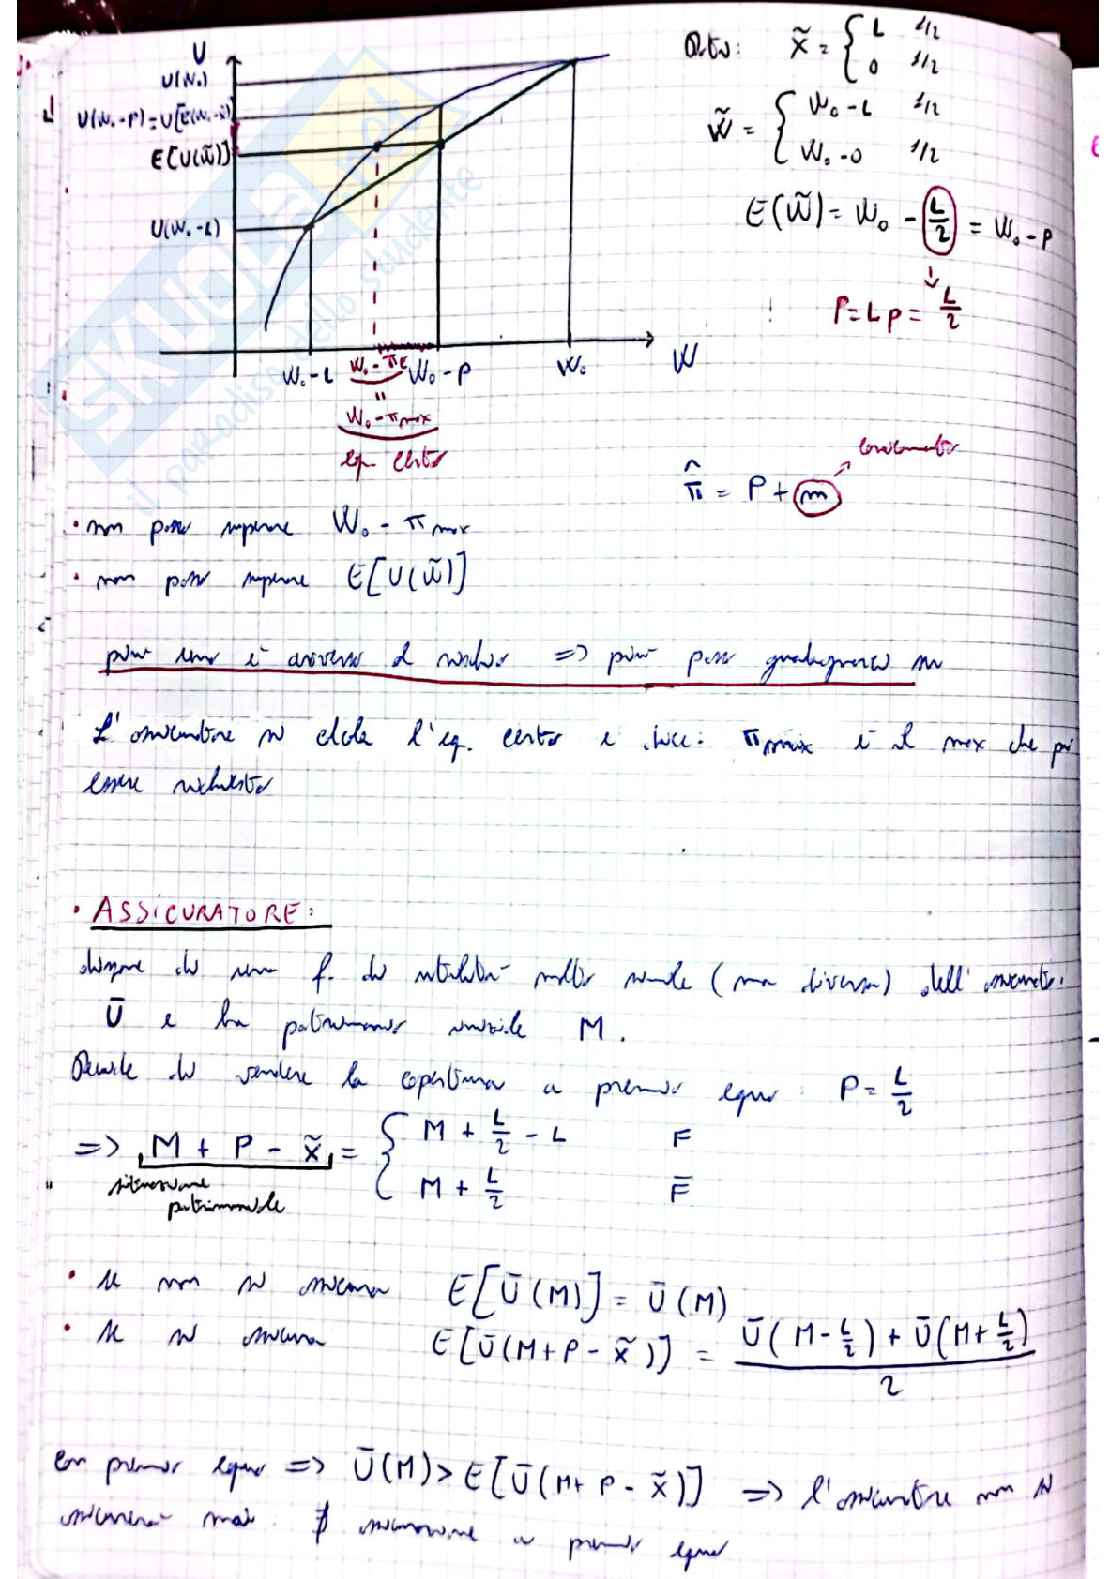 U
U(W₀)
U(W₀-P)=U[E(W₀-x̃)]
E[U(W̃)]
U(W₀-L)
W₀-L W₀-πE W₀-P W₀ W
=
W₀-π max
eq. certo
Dato: x̃ = { L 1/2
0 1/2
W̃ = { W₀-L 1/2
W₀-0 1/2
E(W̃) = W₀ - L/2 = W₀-P
P=Lp= L/2
π̂ = P + m → caricamento
• non posso superare W₀ - π max
• non posso superare E[U(W̃)]
più uno è avverso al rischio => più posso guadagnarci su
L'assicuratore si calcola l'eq. certo e dice: π max è il max che può
essere richiesto
• ASSICURATORE:
dispone di una f. di utilità molto simile (ma diversa) dell'assicurato:
Ū e ha patrimonio iniziale M.
Decide di vendere la copertura a premio equo: P= L/2
=> M + P - x̃ = { M + L/2 - L F
M + L/2 F̄
situazione
patrimoniale
• se non si assicura E[Ū(M)] = Ū(M)
• se si assicura E[Ū(M+P-x̃)] = Ū(M-L/2)+Ū(M+L/2) / 2
con premio equo => Ū(M) > E[Ū(M+P-x̃)] => l'assicuratore non si
assicurerà mai. ∄ assicurazione a premio equo
SKUOLA
il paradiso dello studente